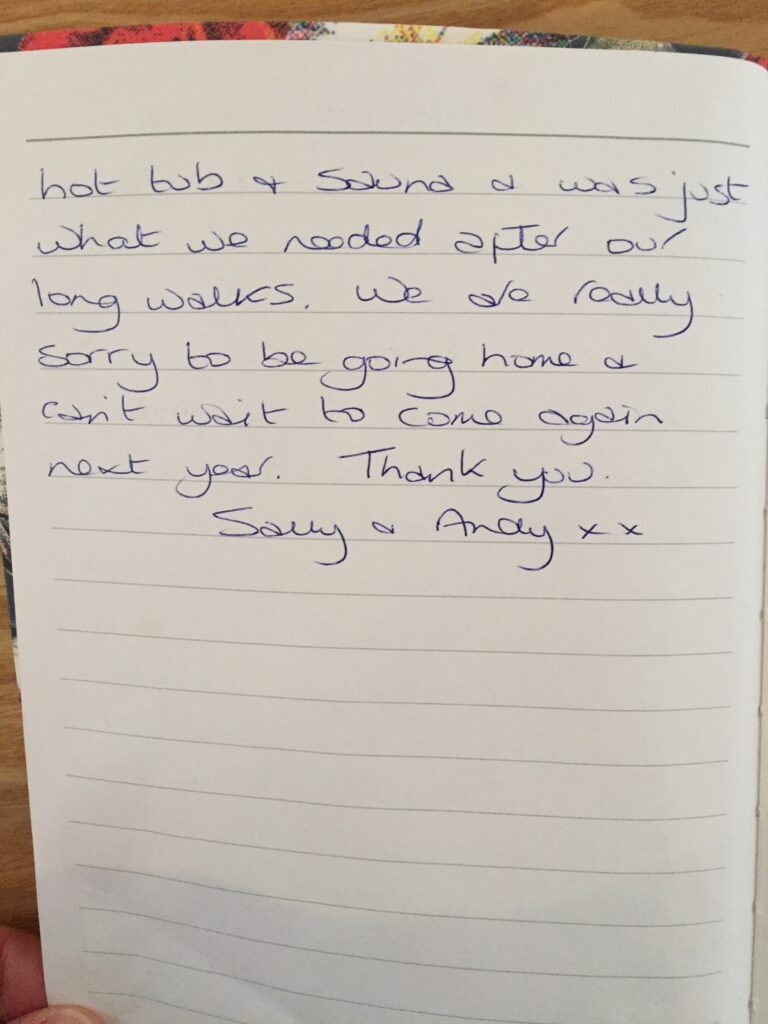 hot tub & Sauna & was just
what we needed after our
long walks. We are really
sorry to be going home &
can't wait to come again
next year. Thank you.
Sally & Andy x x